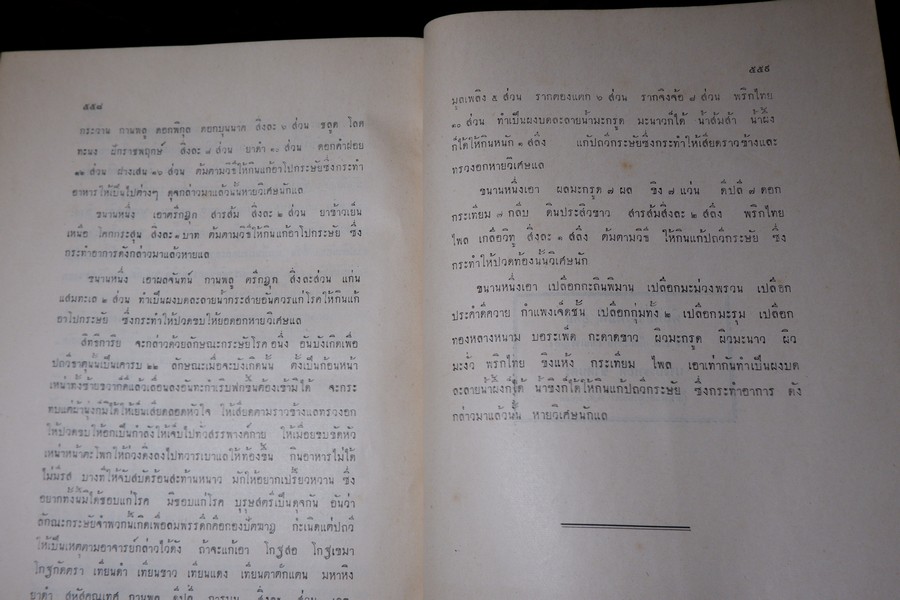 ๕๕๘
กระวาน กานพลู ดอกพิกุล ดอกบุนนาค สิ่งละ ๖ ส่วน ชลูด โลด
ทะนง ฝักราชพฤกษ์ สิ่งละ ๘ ส่วน ยาดำ ๑๐ ส่วน ดอกคำฝอย
๑๒ ส่วน ฝางเสน ๑๖ ส่วน ต้มตามวิธีให้กินแก้อาโปกระษัยซึ่งกระทำ
อาหารให้เป็นไปต่างๆ ดุจกล่าวมาแล้วนั้นหายวิเศษนักแล
ขนานหนึ่ง เอาตรีกฏุก สารส้ม สิ่งละ ๒ ส่วน ยาข้าวเย็น
เหนือ โคกกระสุน สิ่งละ ๑ บาท ต้มตามวิธีให้กินแก้อาโปกระษัย ซึ่ง
กระทำอาการดังกล่าวมาแล้วหายแล
ขนานหนึ่ง เอาผลจันทน์ กานพลู ตรีกฏุก สิ่งละส่วน แก่น
แสมทะเล ๒ ส่วน ทำเป็นผงบดละลายน้ำกระสายอันควรแก่โรคให้กินแก้
อาโปกระษัย ซึ่งกระทำให้ปวดขบให้ยอดอกหายวิเศษแล
สิทธิการิย จะกล่าวด้วยลักษณะกระษัยโรค อนึ่ง อันบังเกิดเพื่อ
ปถวีธาตุนั้นเป็นเคารบ ๒๒ ลักษณะเมื่อจะบังเกิดนั้น ตั้งเป็นก้อนหน้า
เหน่าทั้งซ้ายขวาก็ดีแล้วเลื่อนลงอันทะกำเริบฟักขึ้นต้องเข้ามิได้ จะกระ
ทบแต่ผ้านุ่งก็มิได้ให้เย็นเสียดตลอดหัวใจ ให้เสียดตามราวข้างแลทรวงอก
ให้ปวดขบให้อกเป็นกำลังให้เจ็บไปทั่วสรรพางค์กาย ให้เมื่อยขบขัดหัว
เหน่าหน้าตะโพกให้ถ่วงดึงลงไปทวารเบาแลให้ท้องขึ้น กินอาหารไม่ได้
ไม่มีรส บางทีให้จับสบัดร้อนสะท้านหนาว มักให้อยากเปรี้ยวหวาน ซึ่ง
อยากทั้งนี้มิได้ชอบแก่โรค มิชอบแก่โรค บุรุษสตรีเป็นดุจกัน อันว่า
ลักษณะกระษัยจำพวกนั้นเกิดเพื่อลมพรรดึกคือกองปัตฆาฏ กำเนิดแต่ปถวี
ให้เป็นเหตุตามอาจารย์กล่าวไว้ดัง ถ้าจะแก้เอา โกฐสอ โกฐเขมา
โกฐกัตตรา เทียนดำ เทียนขาว เทียนแดง เทียนตาตั๊กแตน มหาหิง
ยาดำ สหัสคุณเทศ กานพลู ดีปลี การบูน สิ่งละ ส่วน เอา
๕๕๙
มูลเพลิง ๕ ส่วน รากตองแตก ๖ ส่วน รากจิงจ้อ ๗ ส่วน พริกไทย
๑๐ ส่วน ทำเป็นผงบดละลายน้ำมะกรูด มะนาวก็ได้ น้ำส้มส้า น้ำผึ้ง
ก็ได้ให้กินหนัก ๑ สลึง แก้ปถวีกระษัยซึ่งกระทำให้เสียดราวข้างและ
ทรวงอกหายวิเศษแล
ขนานหนึ่งเอา ผลมะกรูด ๗ ผล ขิง ๗ แว่น ดีปลี ๗ ดอก
กระเทียม ๗ กลีบ ดินประสิวขาว สารส้มสิ่งละ ๒ สลึง พริกไทย
ไพล เกลือวิทู สิ่งละ ๑ สลึง ต้มตามวิธี ให้กินแก้ปถวีกระษัย ซึ่ง
กระทำให้ปวดท้องนั้นวิเศษนัก
ขนานหนึ่งเอา เปลือกกะถินพิมาน เปลือกมะม่วงพรวน เปลือก
ประคำดีควาย กำแพงเจ็ดชั้น เปลือกกุ่มทั้ง ๒ เปลือกมะรุม เปลือก
ทองหลางหนาม บอระเพ็ด กะดาดขาว ผิวมะกรูด ผิวมะนาว ผิว
มะงั่ว พริกไทย ขิงแห้ง กระเทียม ไพล เอาเท่ากันทำเป็นผงบด
ละลายน้ำผึ้งก็ได้ น้ำขิงก็ได้ให้กินแก้ปถวีกระษัย ซึ่งกระทำอาการ ดัง
กล่าวมาแล้วนั้น หายวิเศษนักแล